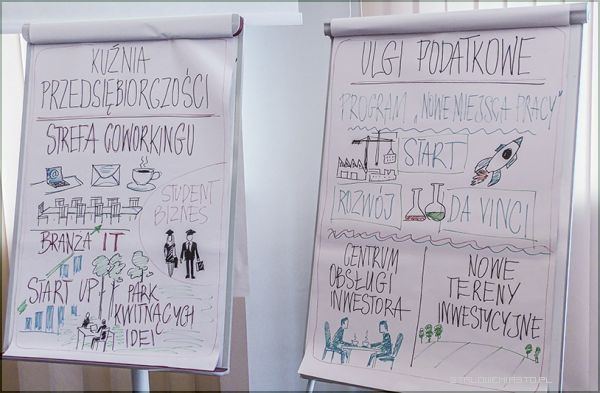 KUŹNIA
PRZEDSIĘBIORCZOŚCI
STREFA COWORKINGU
STUDENT
BIZNES
BRANŻA IT
START UP
PARK
KWITNĄCYCH
IDEI
ULGI PODATKOWE
PROGRAM „NOWE MIEJSCA PRACY"
START
ROZWÓJ
DA VINCI
CENTRUM
OBSŁUGI
INWESTORA
NOWE
TERENY
INWESTYCYJNE